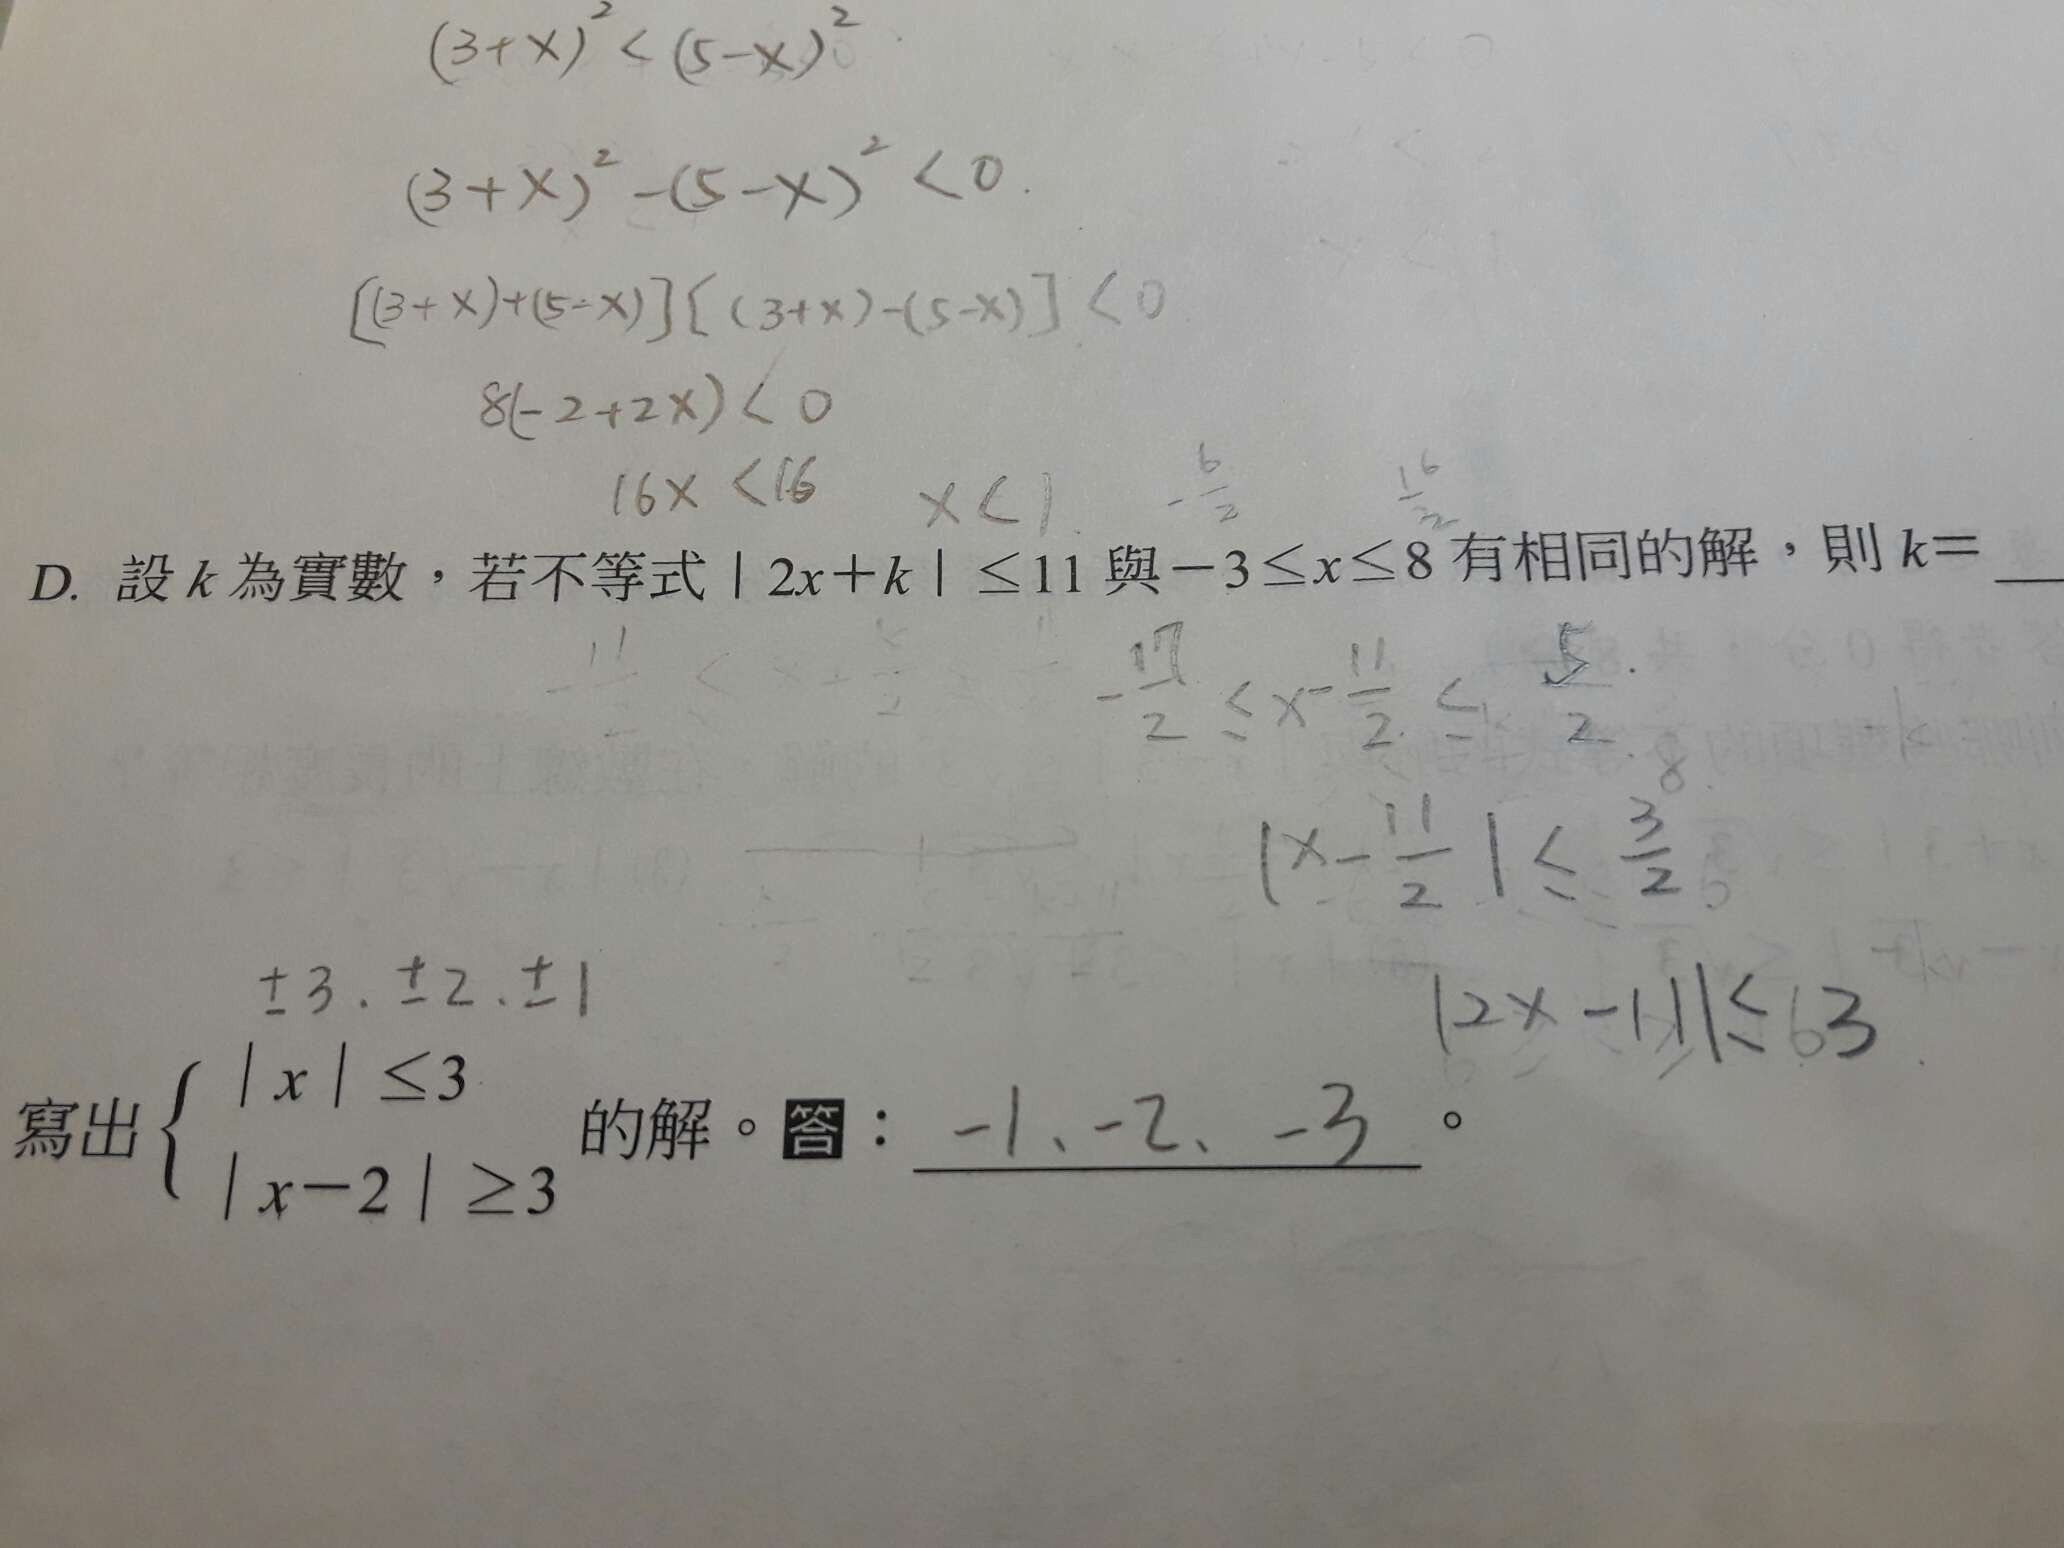 (3+x)² < (5-x)²
(3+x)² -(5-x)² < 0.
[(3+x)+(5-x)][(3+x)-(5-x)] < 0
8(-2+2x) < 0
16x < 16 x < 1. -6/2 16/2
D. 設 k 為實數，若不等式 | 2x+k | ≤11 與 -3≤x≤8 有相同的解，則 k=
-17/2 ≤ x - 11/2 ≤ 5/2
|x - 11/2| ≤ 3/2
±3. ±2. ±1
|2x - 11| ≤ 3
| x | ≤3
寫出 { 的解。答： -1、-2、-3 。
| x-2 | ≥3